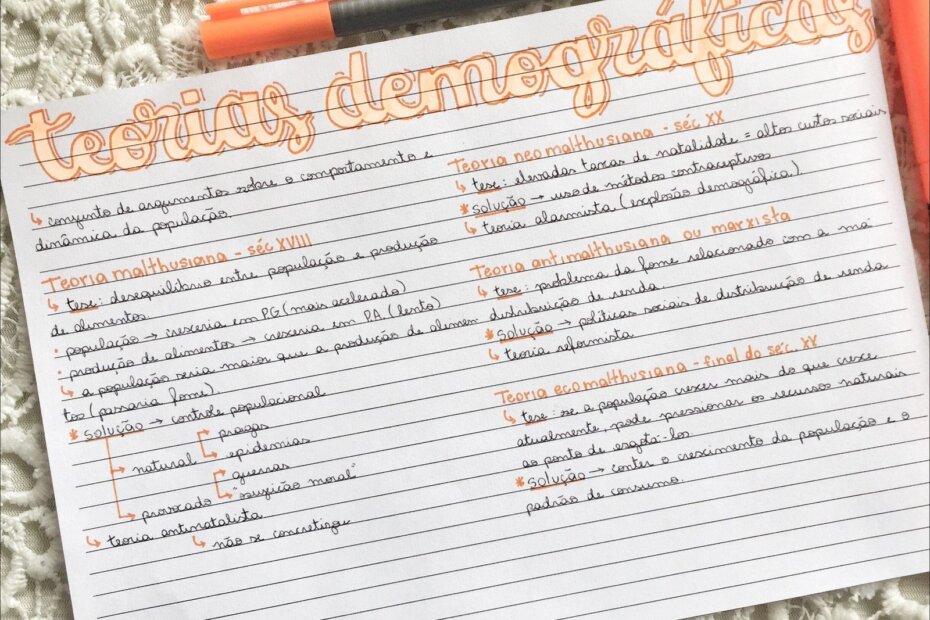 teorias demográficas
↳ conjunto de argumentos sobre o comportamento e
dinâmica da população.
Teoria malthusiana - séc XVIII
↳ tese: desequilíbrio entre população e produção
de alimentos.
: população → cresceria em PG (mais acelerado)
: produção de alimentos → cresceria em PA (lento)
↳ a população seria maior que a produção de alimen-
tos (passaria fome)
* solução → controle populacional
natural
pragas
epidemias
provocado
guerras
"sujeição moral"
↳ teoria antinatalista
↳ não se concretizou
Teoria neomalthusiana - séc XX
↳ tese: elevadas taxas de natalidade = altos custos sociais
* solução → uso de métodos contraceptivos
↳ teoria alarmista (explosão demográfica).
Teoria antimalthusiana ou marxista
↳ tese: problema da fome relacionado com a má
distribuição de renda.
* solução → políticas sociais de distribuição de renda
↳ teoria reformista
Teoria ecomalthusiana - final do séc. XX
↳ tese: se a população crescer mais do que cresce
atualmente, pode pressionar os recursos naturais
ao ponto de esgotá-los
* solução → conter o crescimento da população e o
padrão de consumo.